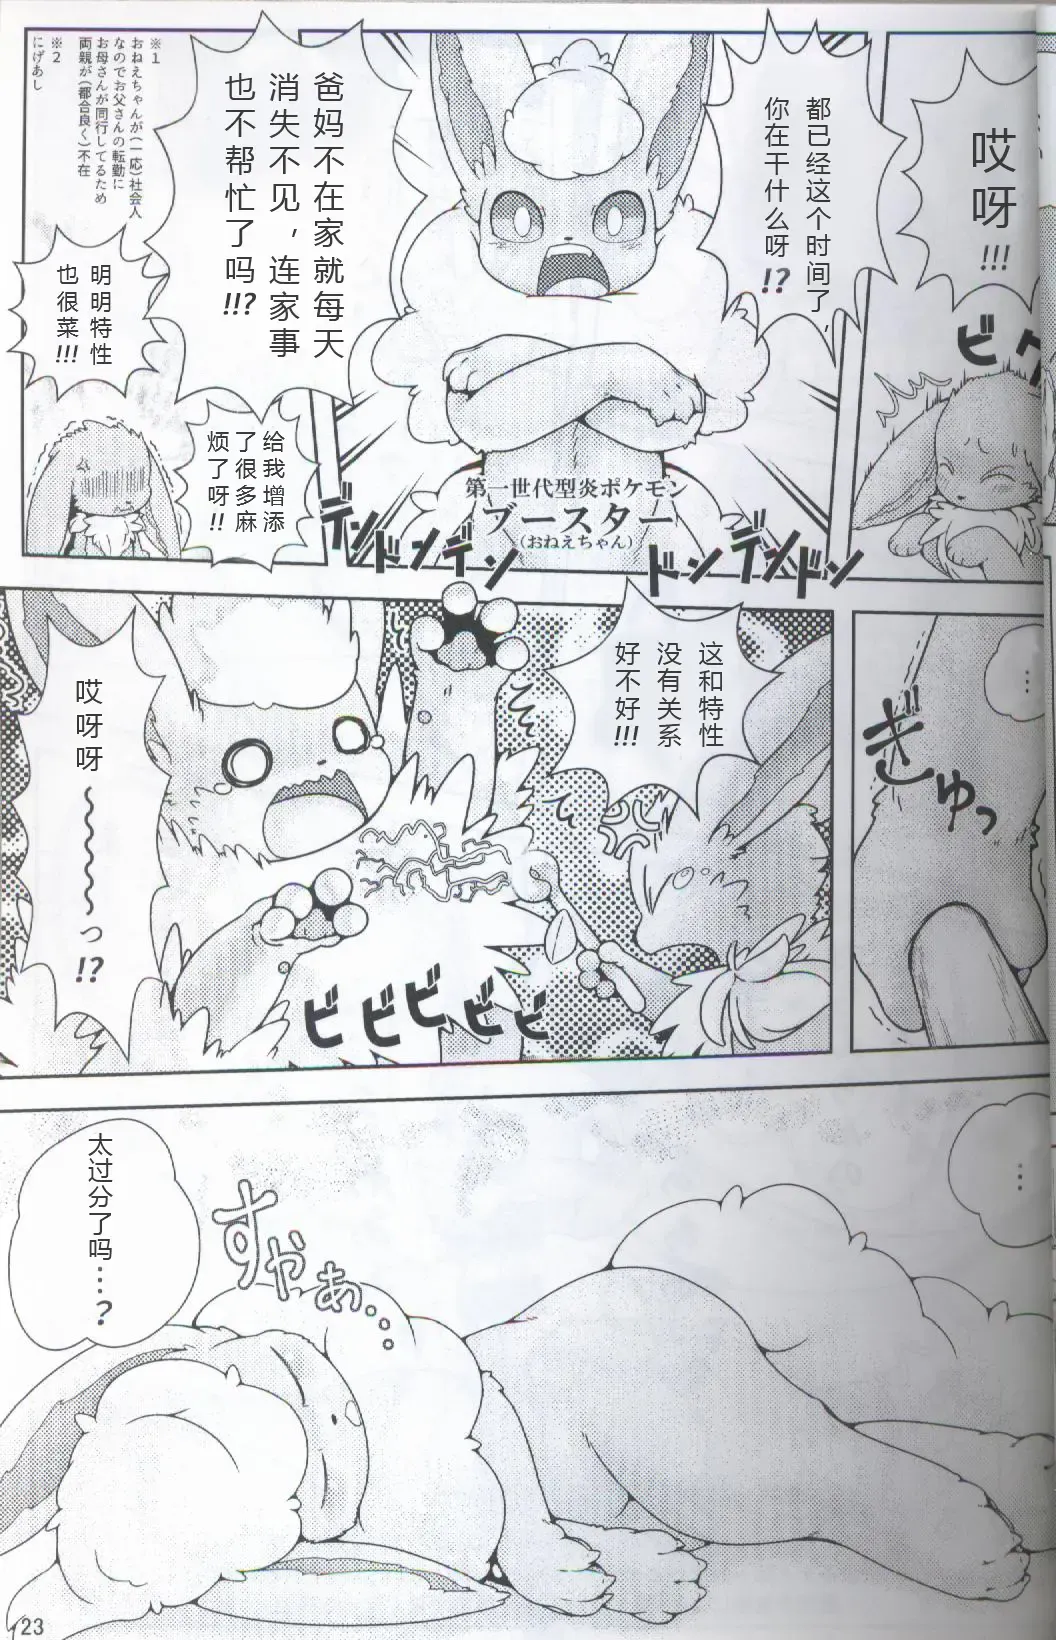 哎
呀
!!!
ビク
都已经这个时间了，
你在干什么呀!?
爸妈不在家就每天
消失不见，连家事
也不帮忙了吗!!?
第一世代型炎ポケモン
ブースター
(おねえちゃん)
デンドンデン
ドンデンドン
給我增添
了很多麻
烦了呀!!
明明特性
也很菜!!!
※1
おねえちゃんが(一応)社会人
なのでお父さんの転勤に
お母さんが同行してるため
両親が(都合良く)不在
※2
にげあし
…
ぎゅっ
这和特性
没有关系
好不好!!!
哎呀呀～～～～っ!?
ビビビビビ
…
すやぁ…
太过分了吗…?
23